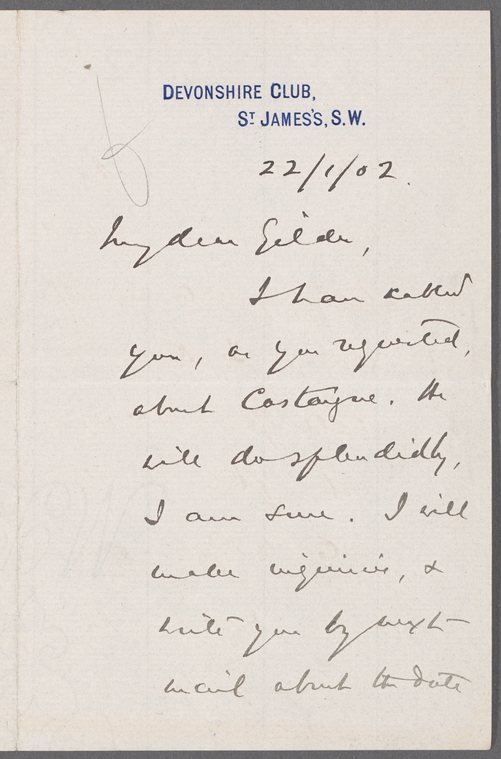 DEVONSHIRE CLUB,
ST JAMES'S, S.W.
22/1/02.
My dear Gilder,
I have cabled
you, as you requested,
about Castaigne. He
will do splendidly,
I am sure. I will
make inquiries, &
write you by next
mail about the date